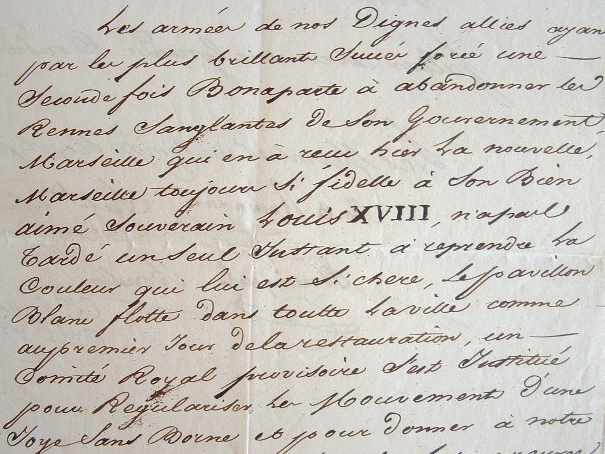 Les armées de nos Dignes allies ayan
par les plus brillant Succés forcé une —
Seconde fois Bonaparte à abandonner les
Rennes Sanglantes de Son Gouvernement,
Marseille qui en à recu hier La nouvelle,
Marseille toujours Si fidelle à Son Bien
aimé Souverain Louis XVIII, n'a pas
Tardé un Seul Instant à reprendre La
Couleur qui lui est Si chere, Le pavillon
Blanc flotte dans toutte La ville comme
au premier Jour de la restauration, un —
Comité Royal provisoire S'est Institué
pour Regulariser Le Mouvement D'une
Joye Sans Borne et pour donner à notre